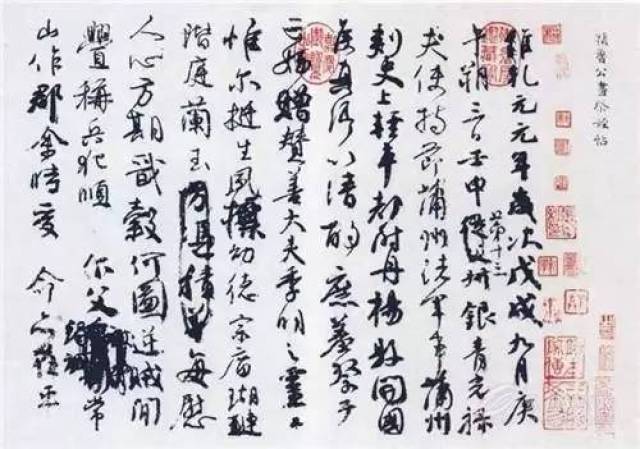 顏魯公書祭姪帖
維乾元元年歲次戊戌九月庚
午朔三日壬申第十三銀青光祿
夫使持節蒲州諸軍事蒲州
刺史上輕車都尉丹楊縣開國
侯真卿以清酌庶羞祭于
亡姪贈贊善大夫季明之靈曰
惟爾挺生夙標幼德宗廟瑚璉
階庭蘭玉每慰
人心方期戩穀何圖逆賊閒
釁稱兵犯順爾父竭誠常
山作郡余時受命亦在平